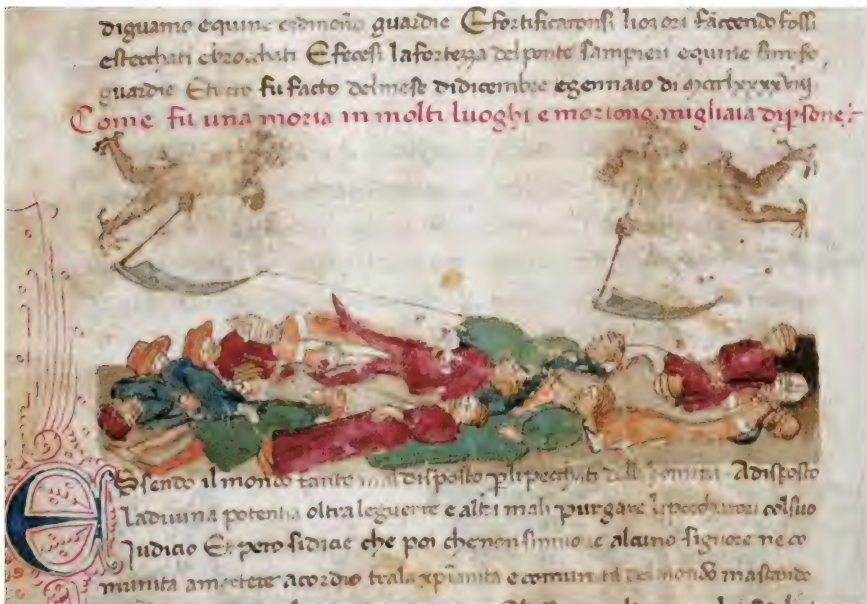 diguamo equine cremono guardie Efortificaronsi liotori faccendo fossi
estecchati ebrocchati Efecesi lafortezza delponte sampieri equine simise
guardie Etucto fu facto delmese didicembre egennaio di
Come fu una moria in molti luoghi e moriono migliaia dipsone
Essendo il mondo tanto mal disposto plipecchati dell Adisposto
Ladiuina potentia oltraleguerre e altri mali purgare colsuo
Iudicio Et pero sidicie che poi chenon alcuno signore ne co
munita amectere acordio trala xpianita e mondo mastando